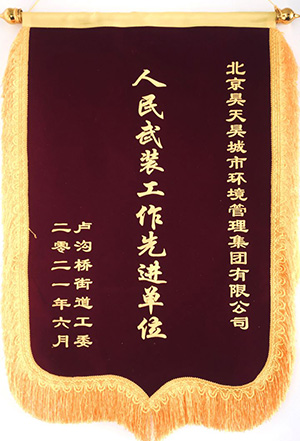 北京昊天昊城市环境管理集团有限公司
人民武装工作先进单位
卢沟桥街道工委
二零二一年六月